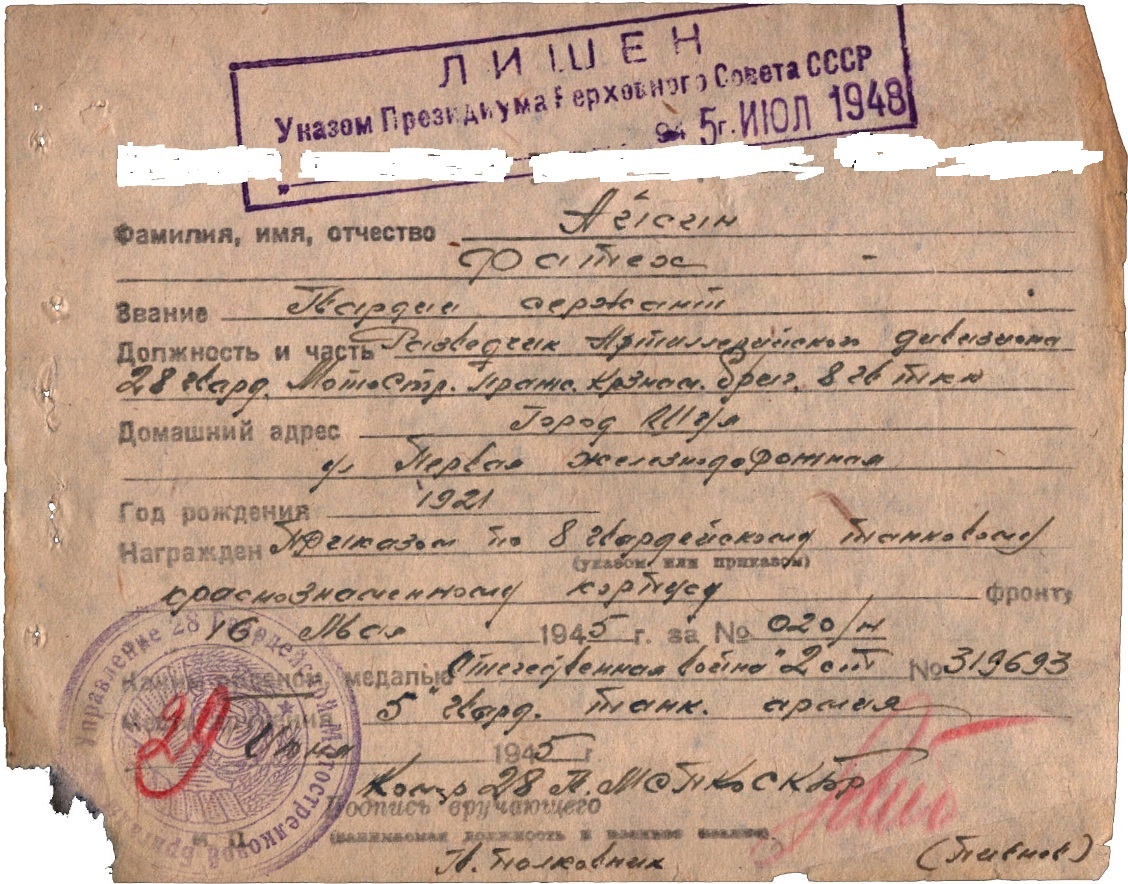 ЛИШЕН
Указом Президиума Верховного Совета СССР
5 г. ИЮЛ 1948
Фамилия, имя, отчество
Фатех -
Звание Гвардии сержант
Должность и часть Разведчик Артиллерийского дивизиона
28 гвард. МотоСтр. Краснозн. бриг. 8 гв ткк
Домашний адрес Город
ул Первая железнодорожная
Год рождения 1921
Награжден Приказом по 8 гвардейскому танковому
(указом или приказом)
краснознаменному корпусу фронту
16 Мая 1945 г. за № 020/н
Каким орденом, медалью Отечественная война" 2 ст № 319693
5" гвард. танк. армия
29 Июня 1945 г
Подпись вручающего
М. П. (занимаемая должность и военное звание)
Гв. полковник (Пивнев)
Управление 28 Гвардейской Мотострелковой Бригады